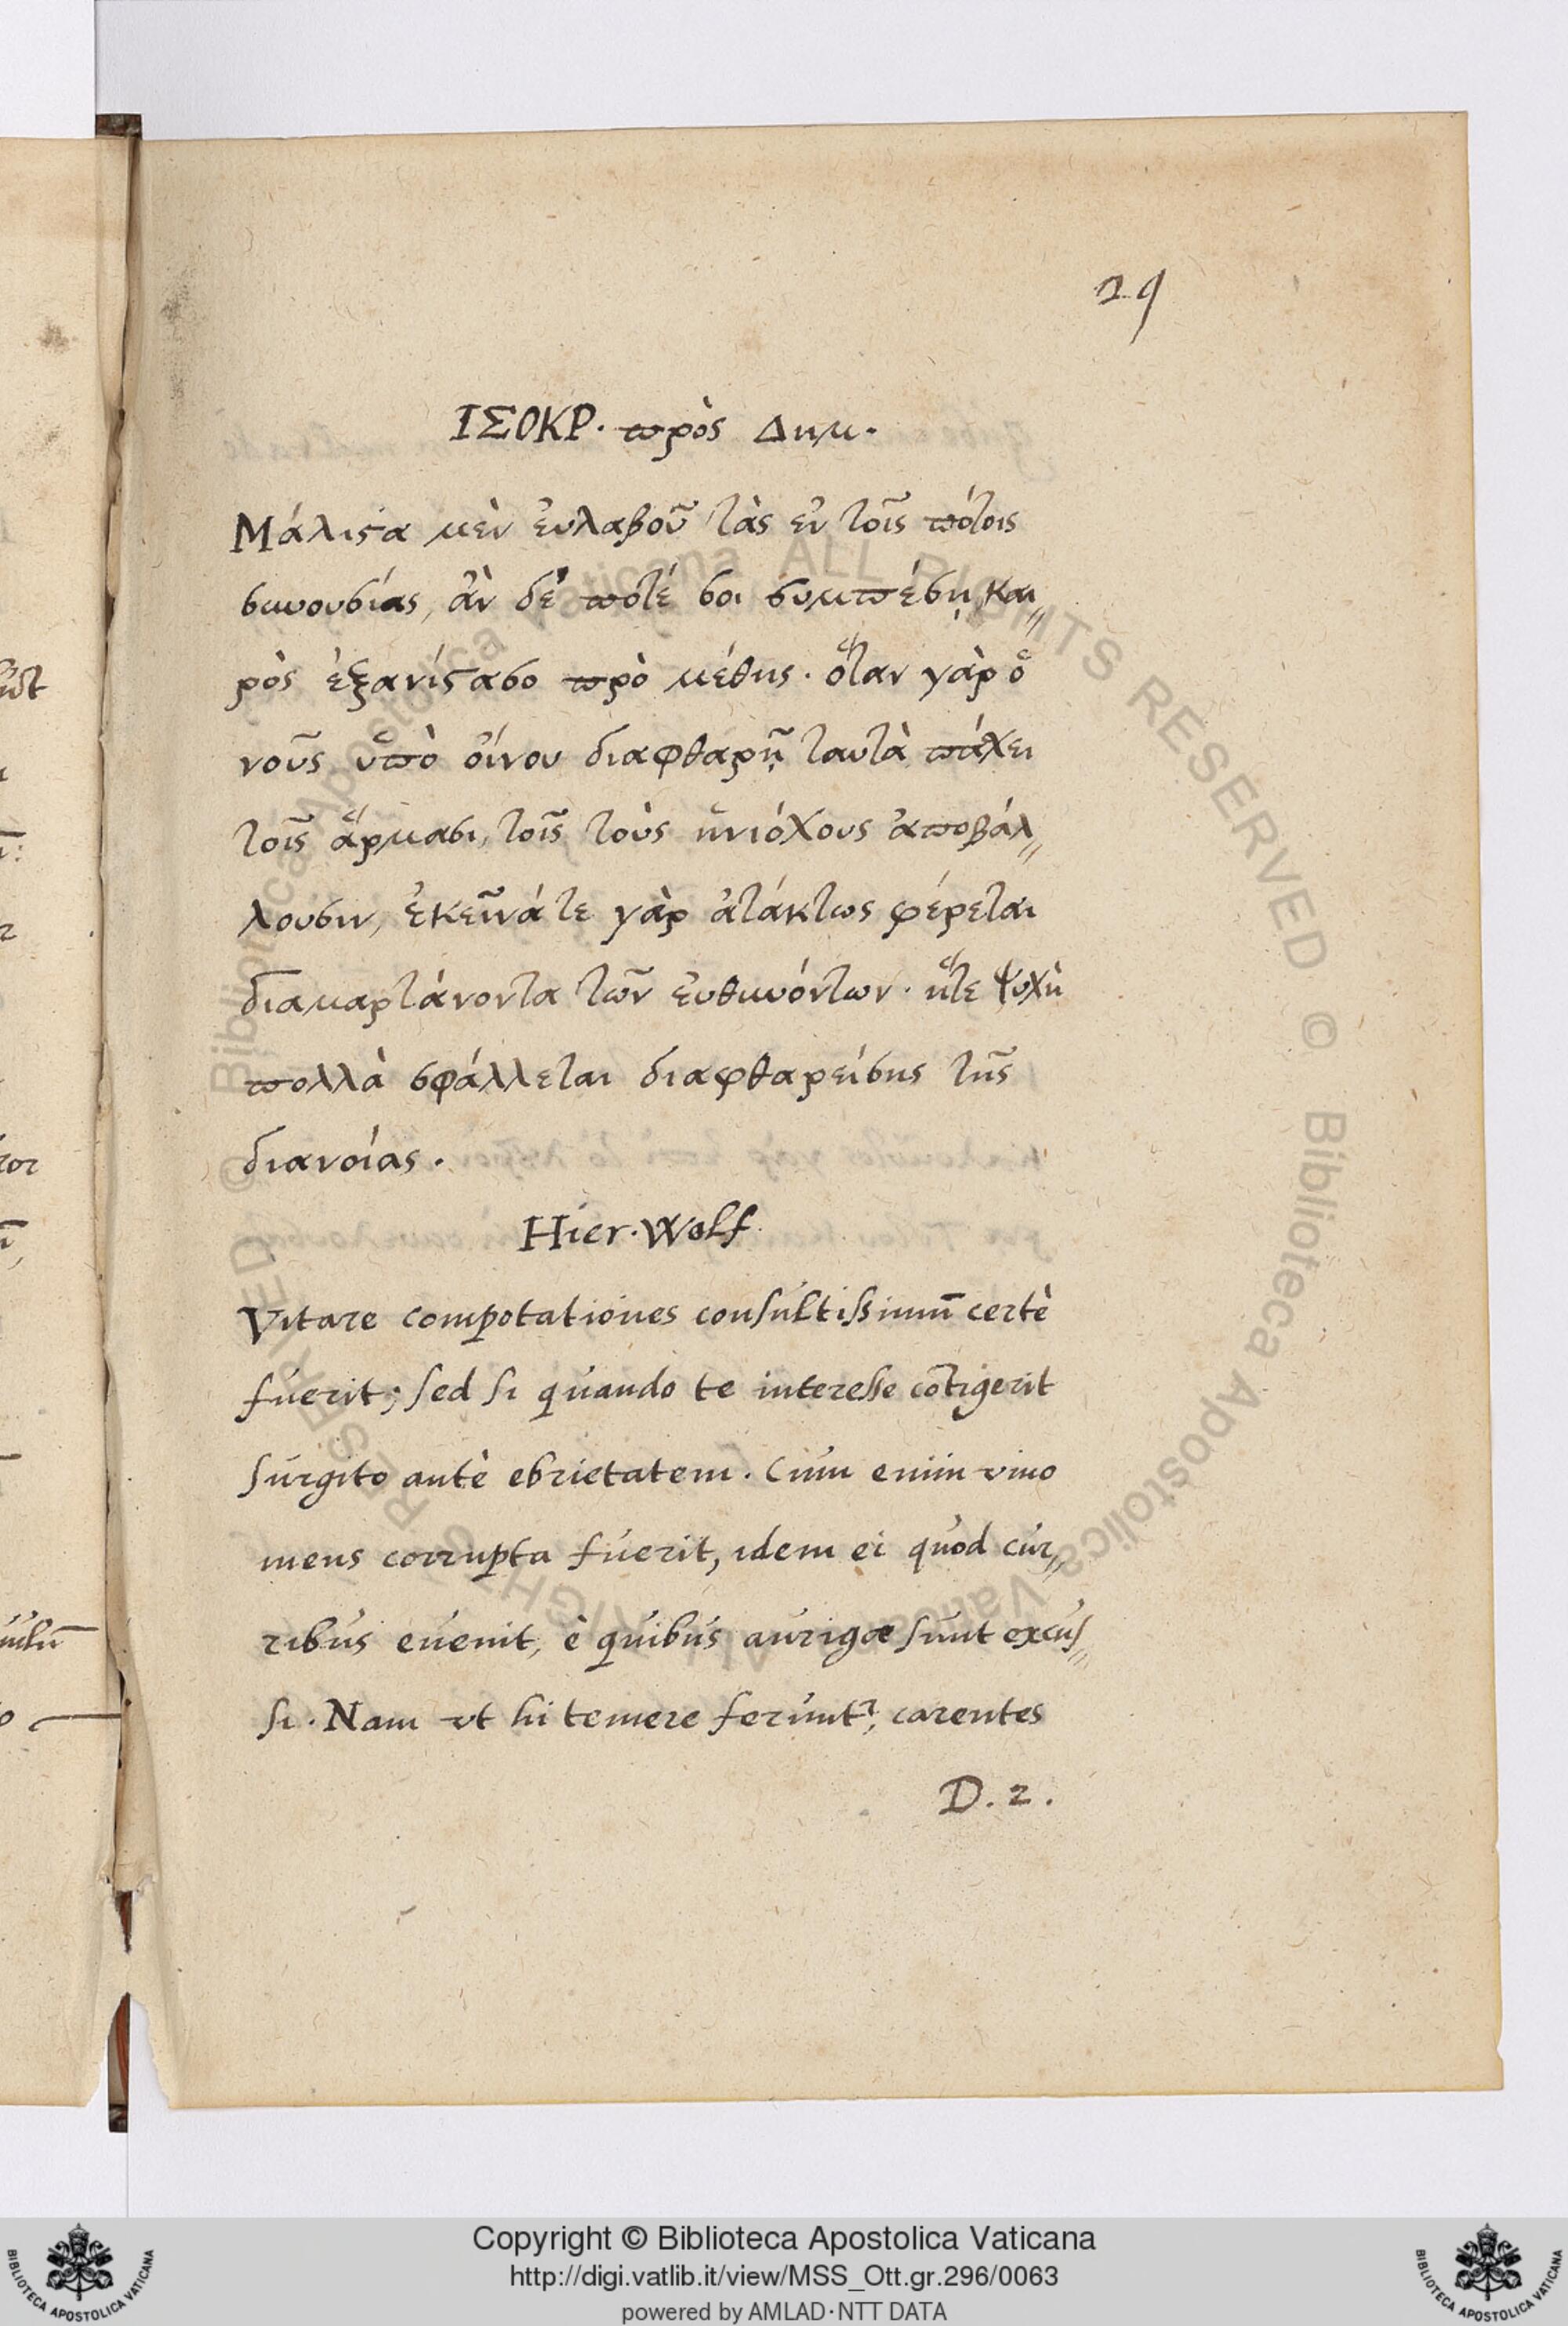 29
ΙΣΟΚΡ. πρὸς Δημ.
Μάλιϛα μὲν ἐυλαβοῦ τὰς ἐν τοῖς πότοις
συνουσίας, ἀν δέ ποτέ σοι συμπέσῃ και
ρὸς ἐξανίϛασο πρὸ μέθης. ὅταν γὰρ ὁ
νοῦς ὑπὸ ὀίνου διαφθαρῇ ταυτὰ πάχει
τοῖς ἅρμασι, τοῖς τοὺς ἡνιόχους ἀποβάλ
λουσιν, ἐκεῖνά τε γὰρ ἀτάκτως φέρεται
διαμαρτάνοντα τῶν ἐυθυνόντων. ἥτε ψυχὴ
πολλὰ σφάλλεται διαφθαρείσης τῆς
διανοίας.
Hier. Wolf.
Vitare compotationes consultissimū certè
fuerit; sed si quando te interesse cōtigerit
surgito antè ebrietatem. Cùm enim vino
mens corrupta fuerit, idem ei quod cur
ribus euenit, è quibus aurigæ sunt excus
si. Nam vt hi temere ferunt², carentes
D. 2.
Copyright © Biblioteca Apostolica Vaticana
http://digi.vatlib.it/view/MSS_Ott.gr.296/0063
powered by AMLAD·NTT DATA